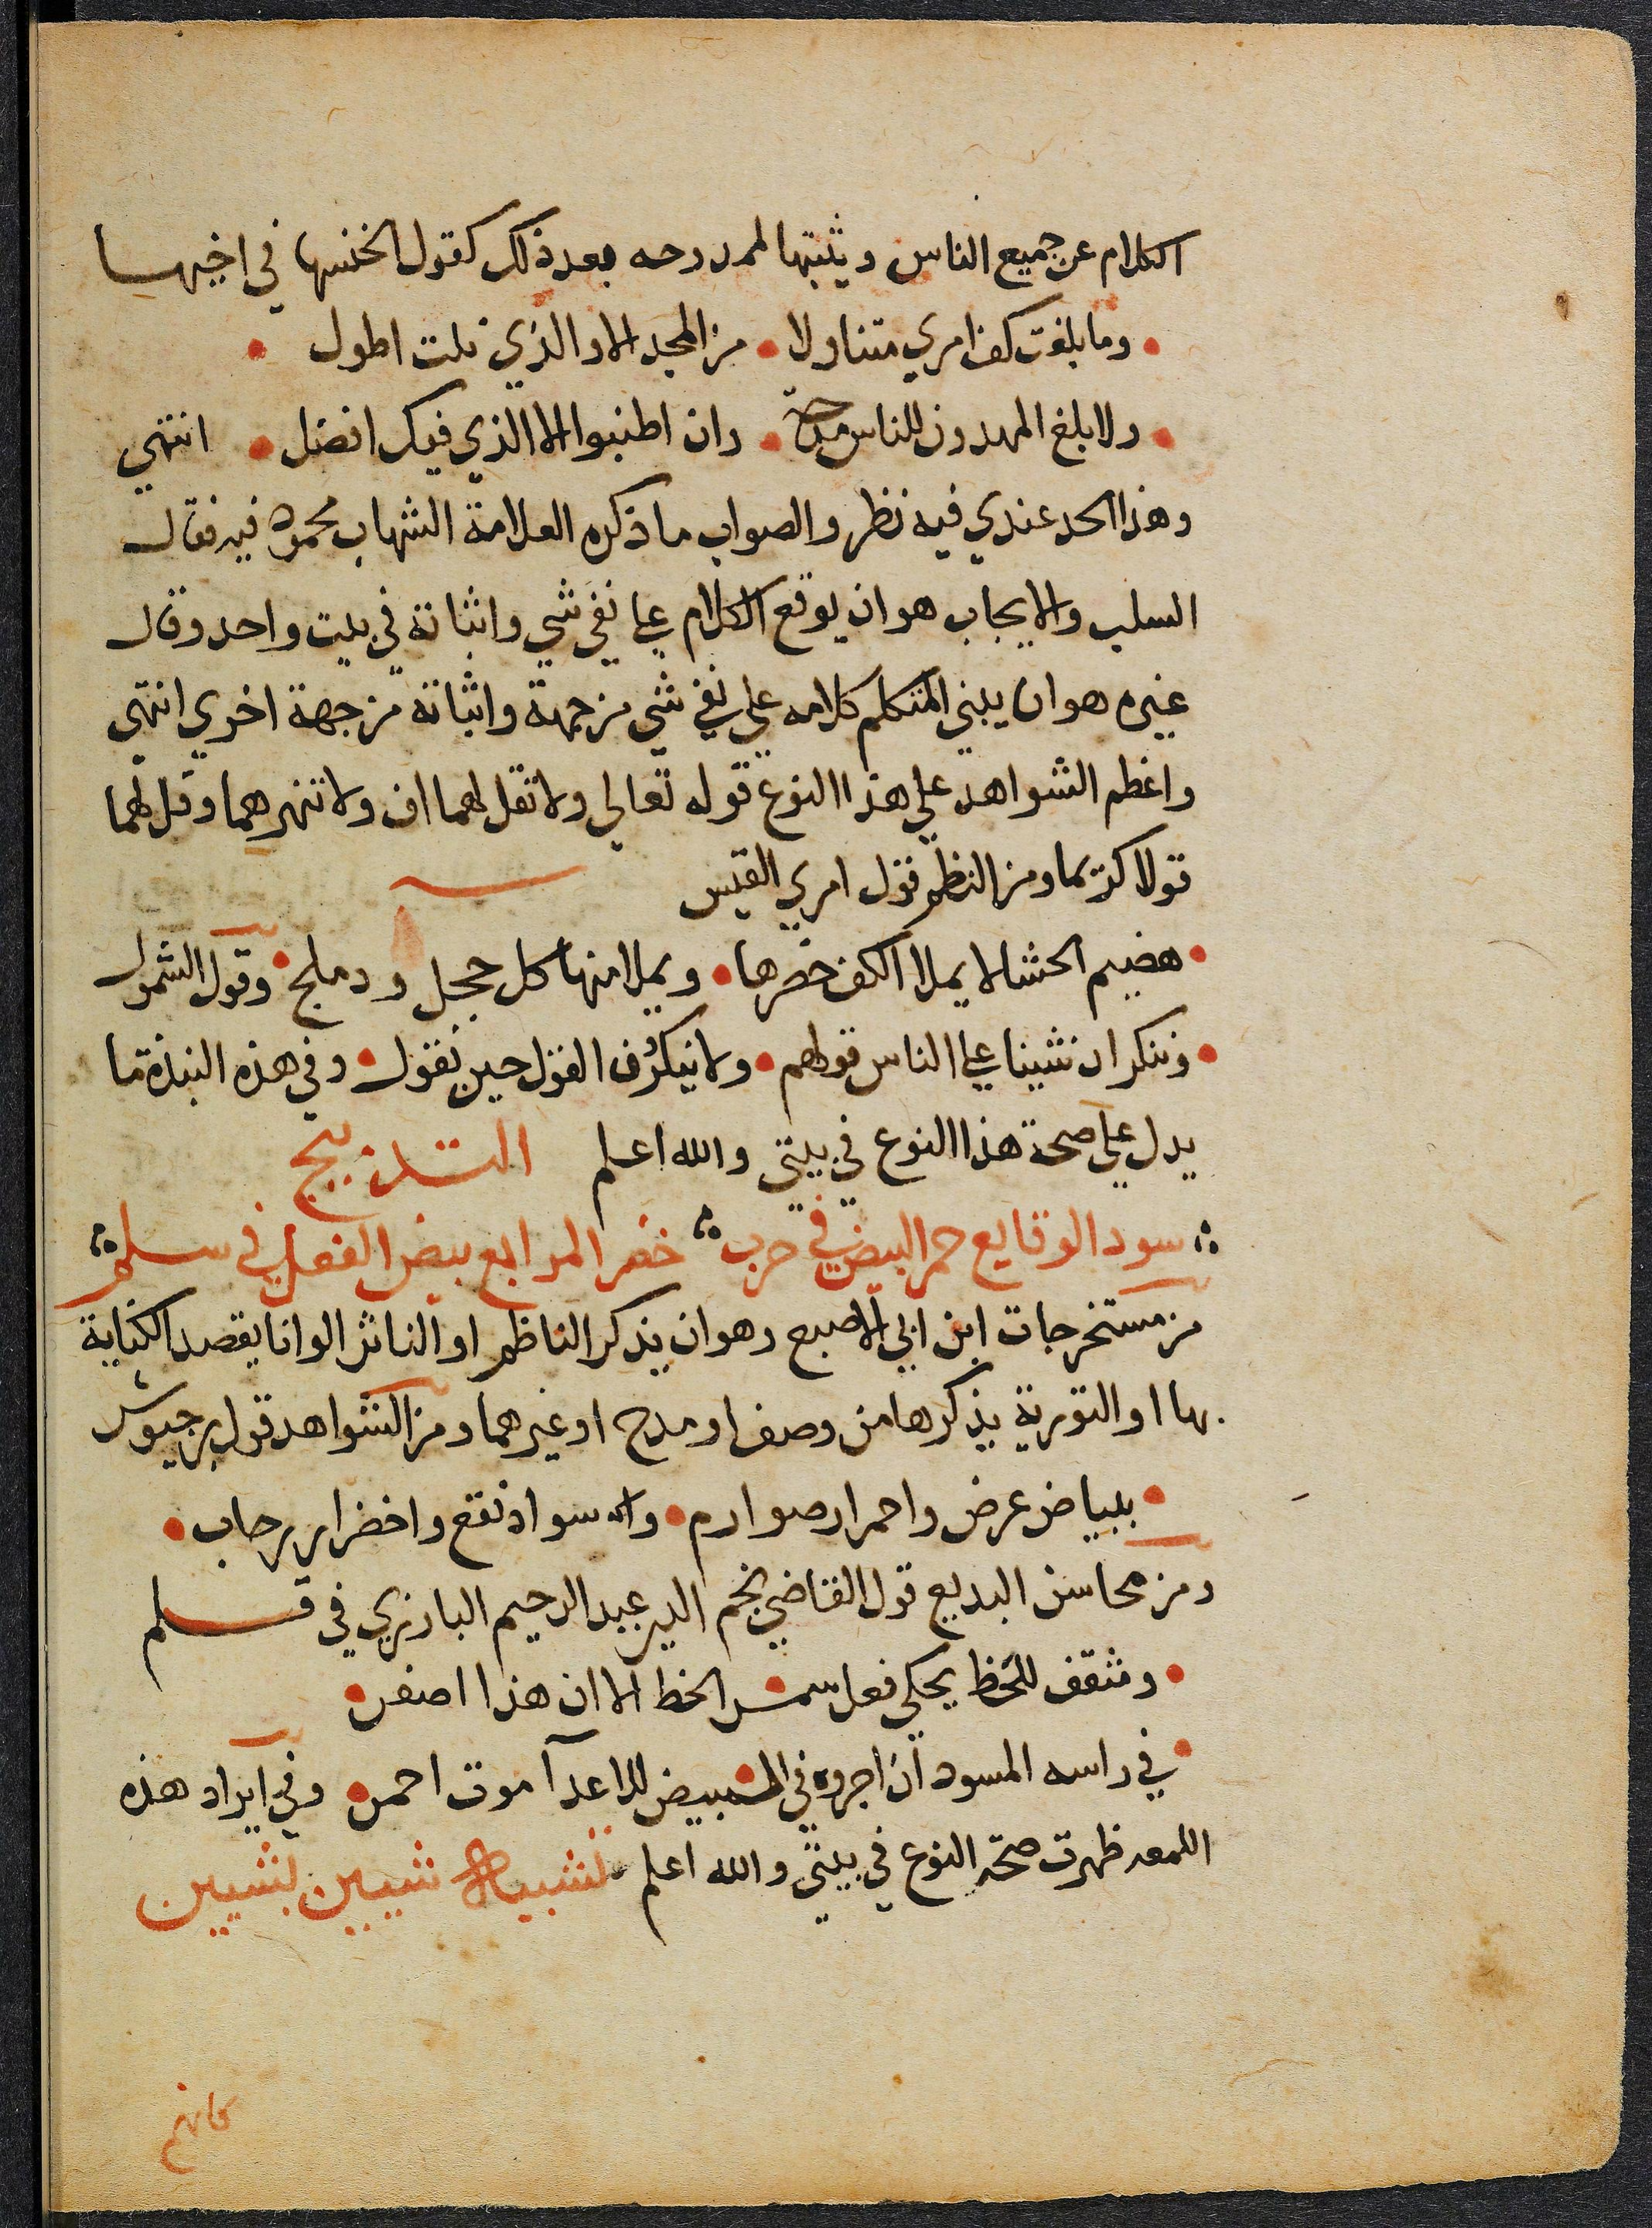 الكلام عن جميع الناس ويثبتها لممدوحه بعد ذلك كقول الخنسا في اخيها
• وما بلغت كف امري متناولا • من المجد الا والذي نلت اطول •
• ولا بلغ المهدون للناس مدحة • وان اطنبوا الا الذي فيك افضل • انتهي
وهذا الحد عندي فيه نظر والصواب ما ذكره العلامة الشهاب محمود فيه فقال
السلب والايجاب هو ان يوقع الكلام علي نفي شي واثباته في بيت واحد وقال
غيره هو ان يبني المتكلم كلامه علي نفي شي من جهة واثباته من جهة اخري انتهي
واعظم الشواهد علي هذا النوع قوله تعالي ولا تقل لهما اف ولا تنهرهما وقل لهما
قولا كريما ومن النظم قول امري القيس
• هضيم الحشا لا يملا الكف خصرها • ويملا منها كل حجل ودملج • وقول الشمول
• وننكر ان شينا علي الناس قولهم • ولا ينكرون القول حين نقول • وفي هذه النبذة ما
يدل علي صحة هذا النوع في بيتي والله اعلم التدبيج
سود الوقايع حمر البيض في حرب خضر المرابع بيض الفعل في سلم
من مستخرجات ابن ابي الاصبع وهو ان يذكر الناظم او الناثر الوانا يقصد الكناية
بها او التورية بذكرها من وصف او مدح او غيرهما ومن الشواهد قول بن حيوش
• ببياض عرض واحمرار صوارم • واسوادد نقع واخضرار رحاب •
ومن محاسن البديع قول القاضي نجم الدين عبد الرحيم البارزي في قلم
• ومثقف للخط يحكي فعل سمر الخط الا ان هذا اصفر •
• في راسه المسود ان اجروه في المبيض للاعدآ موت احمر • وفي ايراد هذه
اللمعه ظهرت صحة النوع في بيتي والله اعلم تشبيه شيين بشيين
كانهم